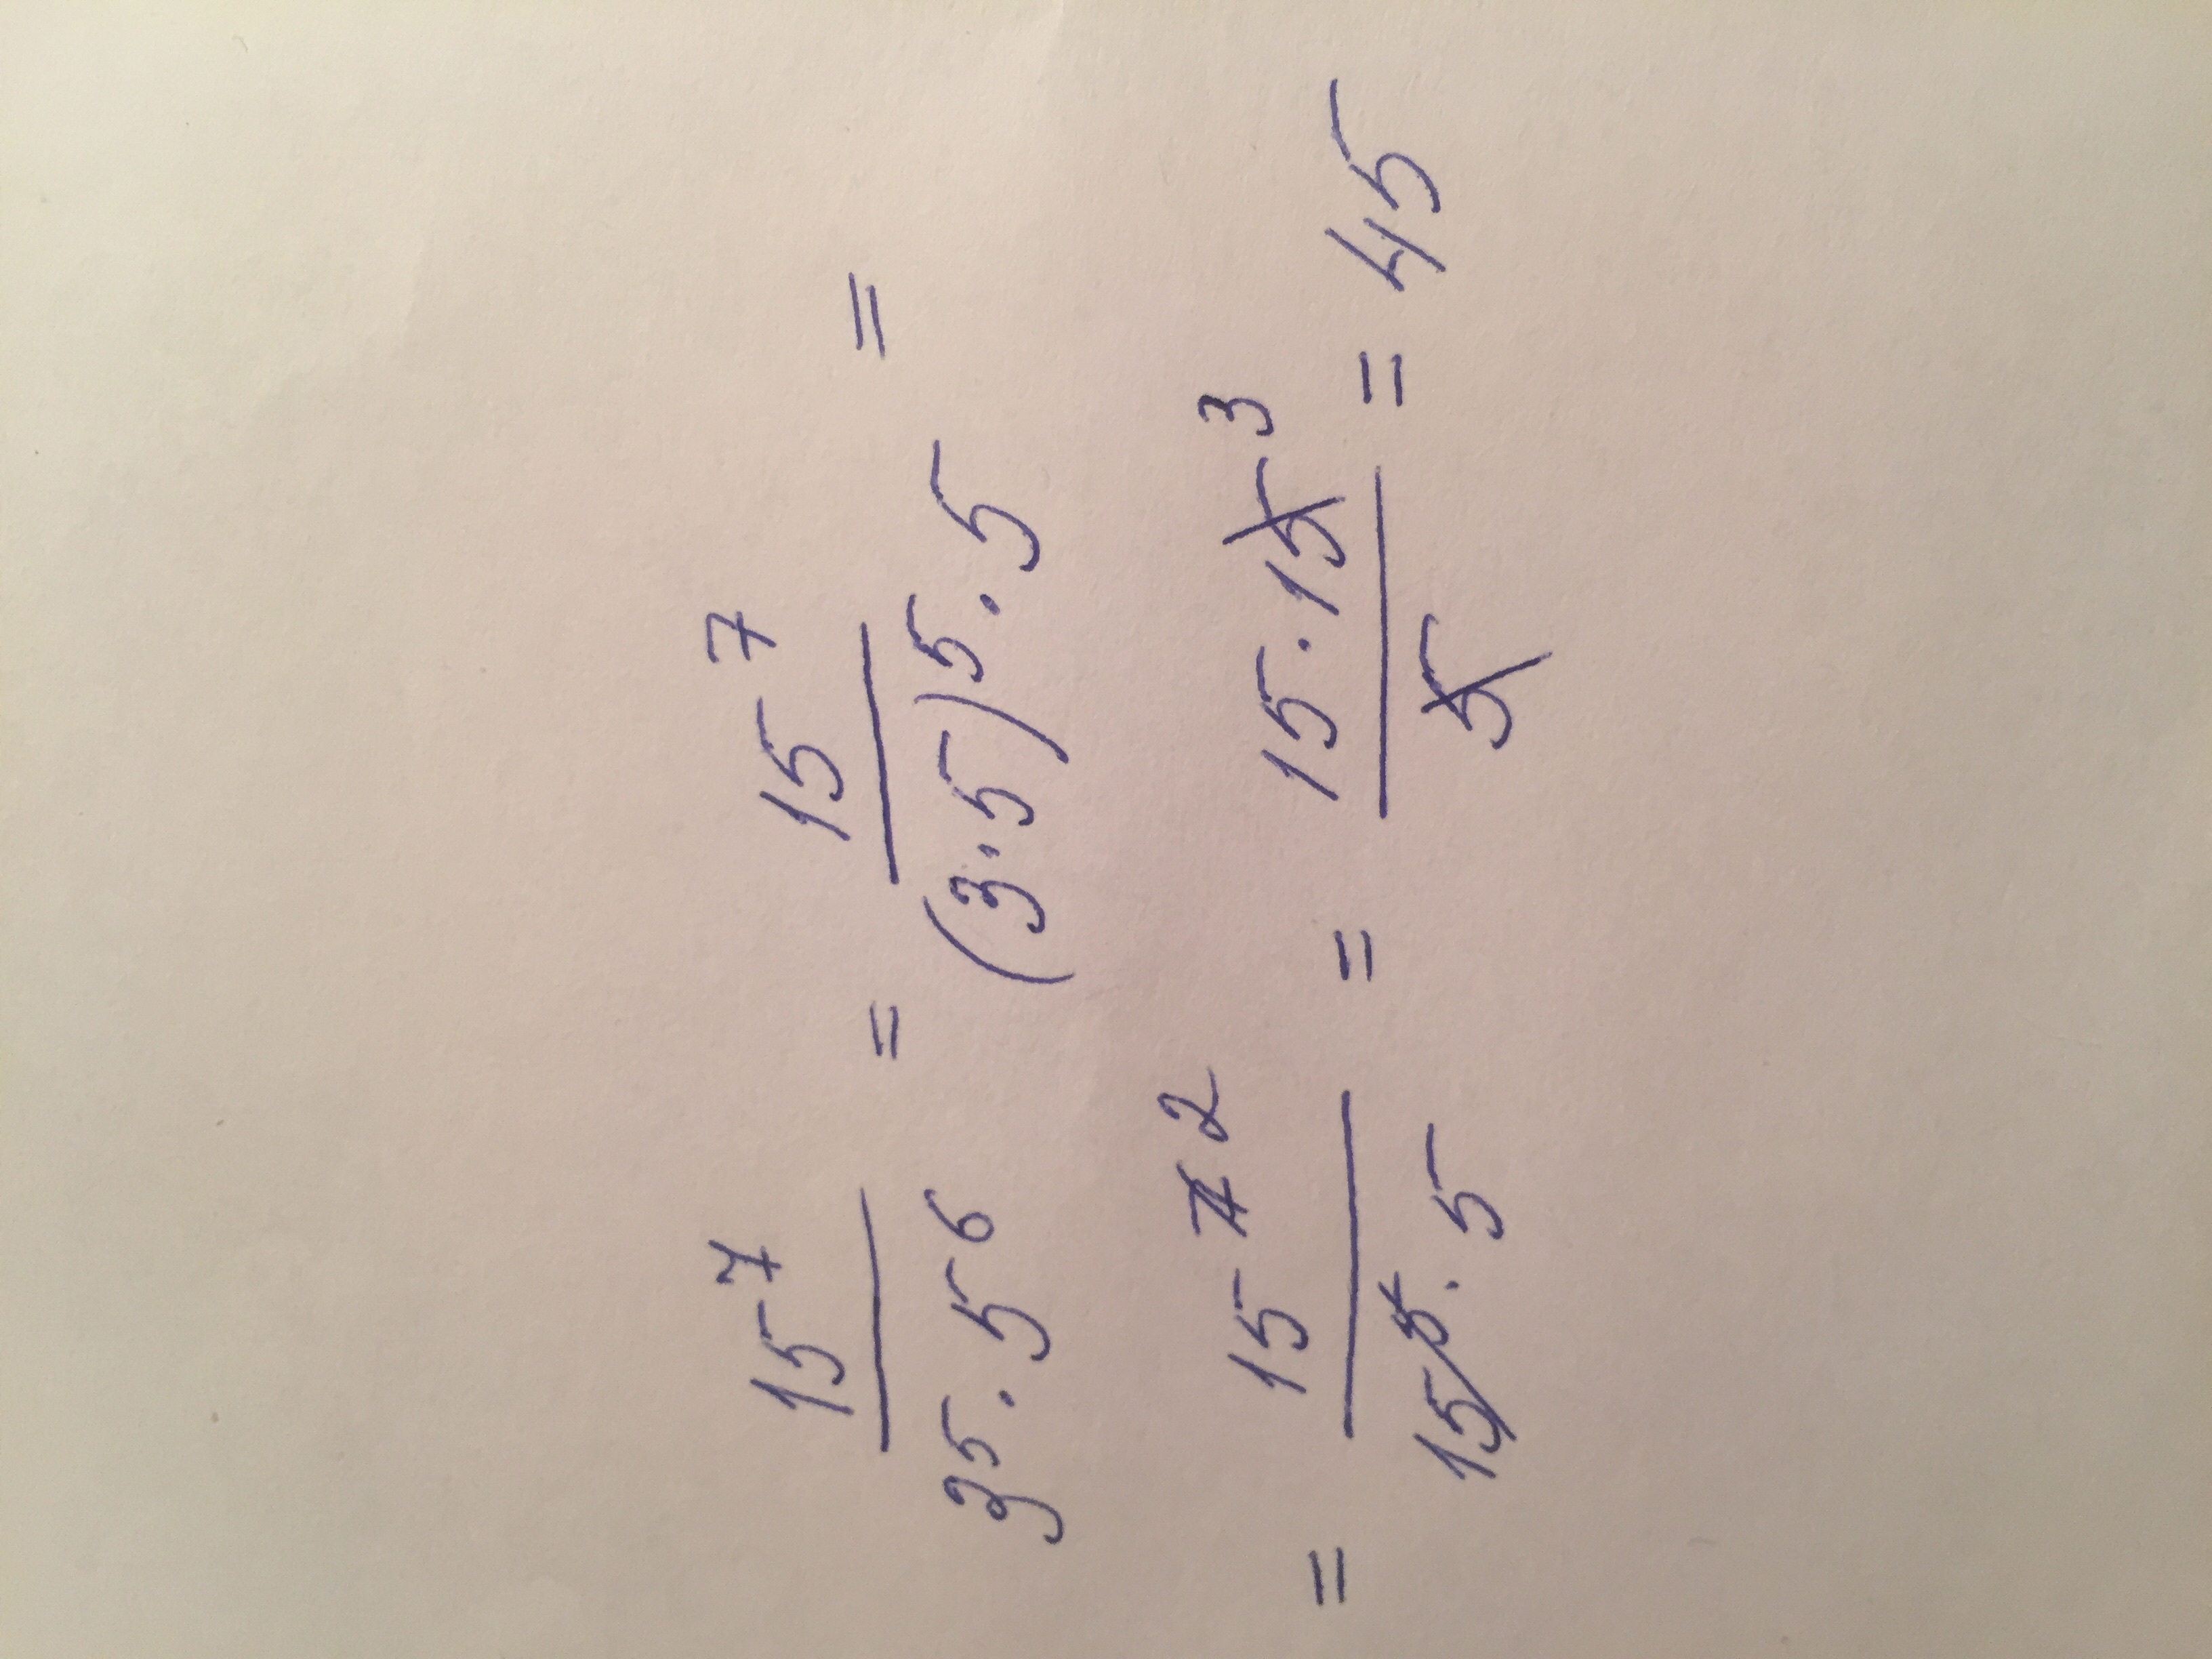 15⁷/(3⁵·5⁶) = 15⁷/((3·5)⁵·5) =
= 15⁷ ²/(15⁵·5) = 15·15 ³/5 = 45